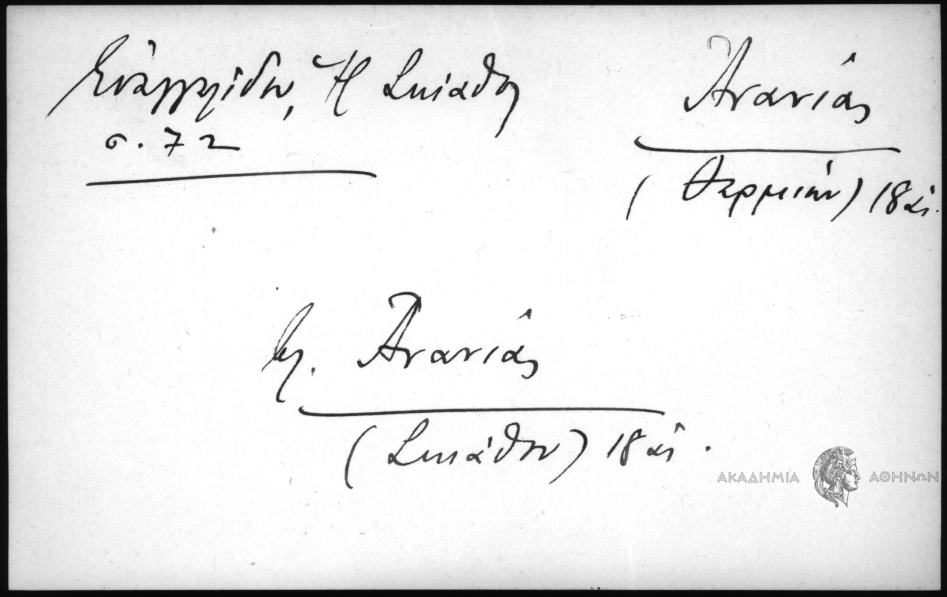 Εὐαγγελίδου, Ἡ Σκίαθος
σ. 72
Ἀνανίας
(Θερμιών) 18 αἰ.
Ἀνανίας
(Σκιάθου) 18 αἰ.
ΑΚΑΔΗΜΙΑ ΑΘΗΝΩΝ